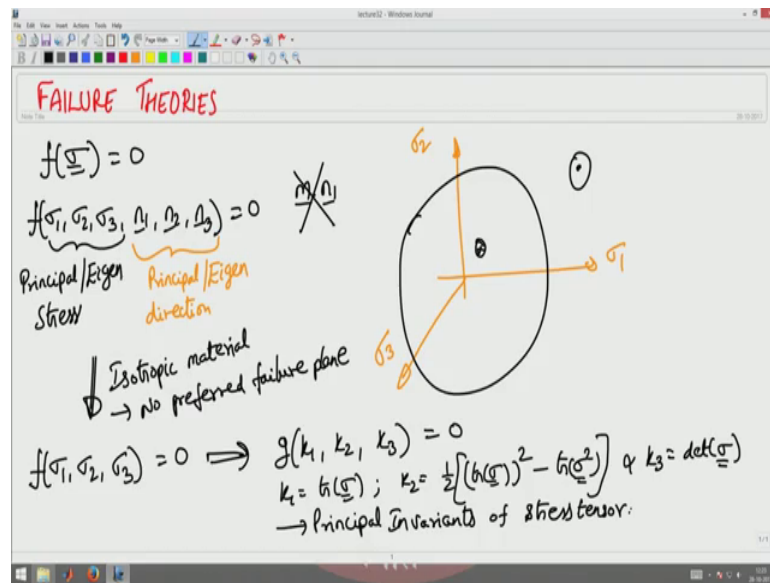 lecture32 - Windows Journal
File Edit View Insert Actions Tools Help
Page Width
B I
FAILURE THEORIES
Note Title
28-10-2017
f(σ) = 0
f(σ1, σ2, σ3, n1, n2, n3) = 0
Principal/Eigen
Stress
Principal/Eigen
direction
Isotropic material
→ No preferred failure plane
σ2
σ1
σ3
f(σ1, σ2, σ3) = 0 ⟹ g(K1, K2, K3) = 0
K1 = tr(σ) ; K2 = 1/2 [(tr(σ))^2 - tr(σ^2)] & K3 = det(σ)
→ Principal Invariants of stress tensor.
1/1
1